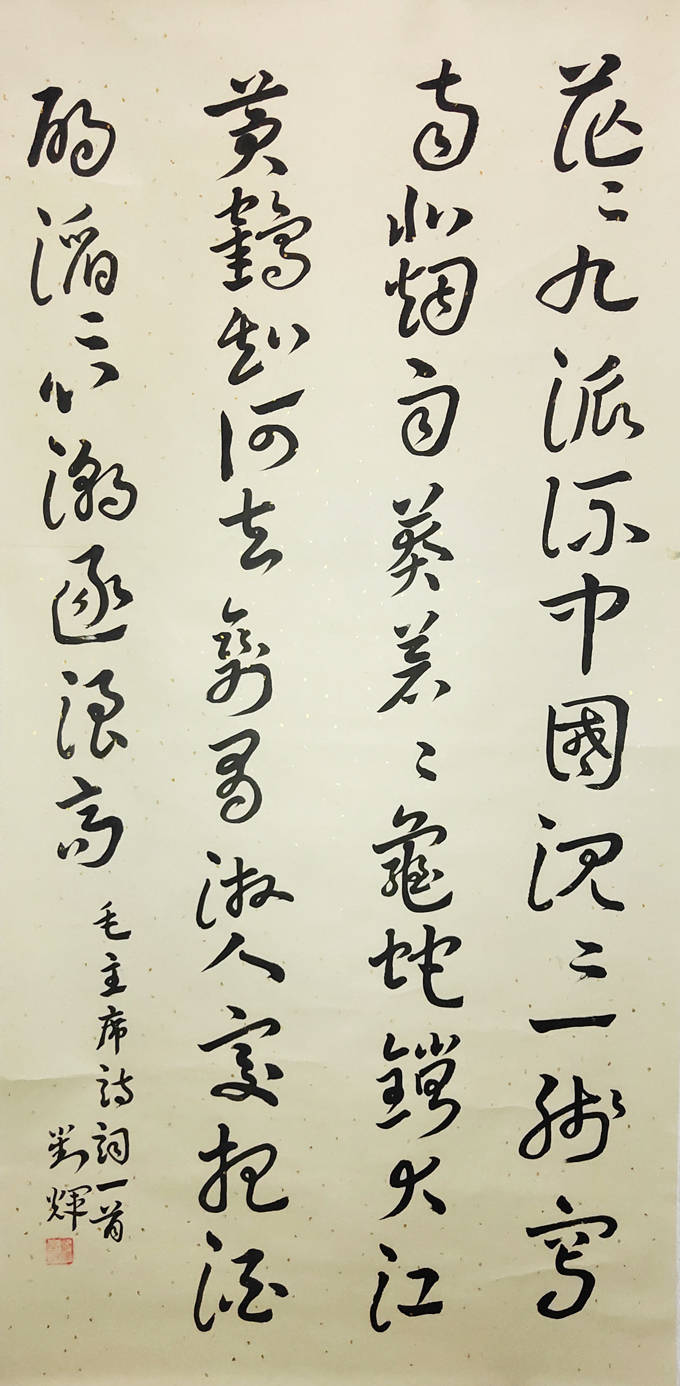 茫〻九派流中國沉〻一線穿
南北烟雨莽蒼〻龜蛇鎖大江
黃鶴知何去剩有游人處把酒
酹滔〻心潮逐浪高
毛主席詩詞一首
劉輝